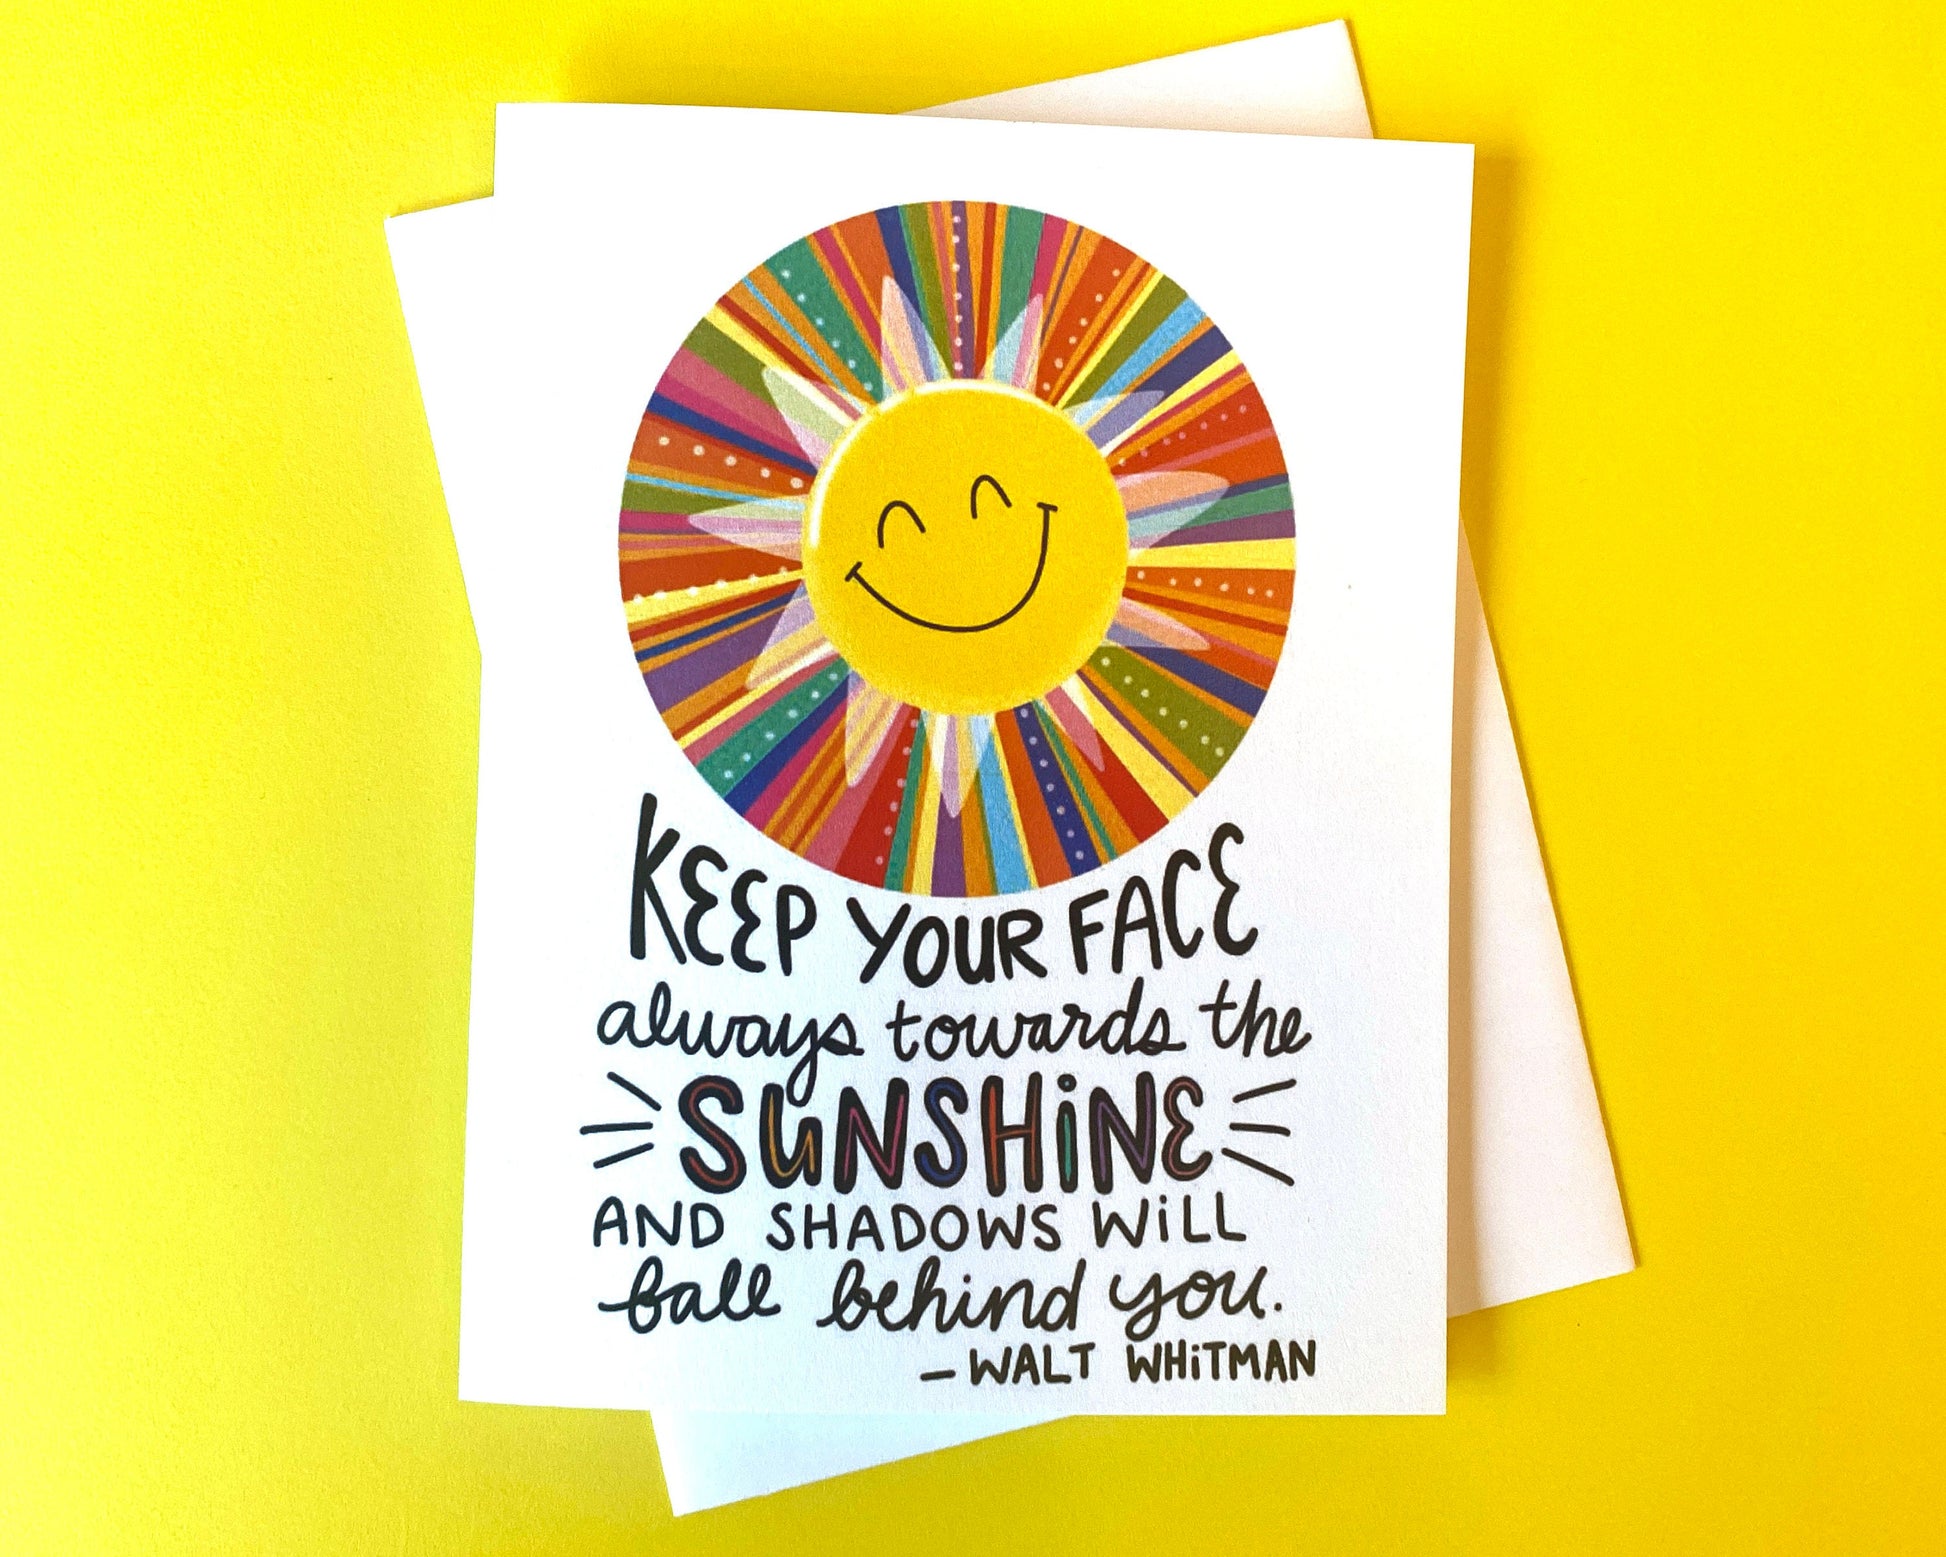 KEEP YOUR FACE
always towards the
SUNSHiNE
AND SHADOWS WiLL
fall behind you.
– WALT WHiTMAN